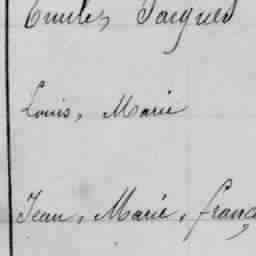 Jacques
Louis, Marie
Jean, Marie, franç